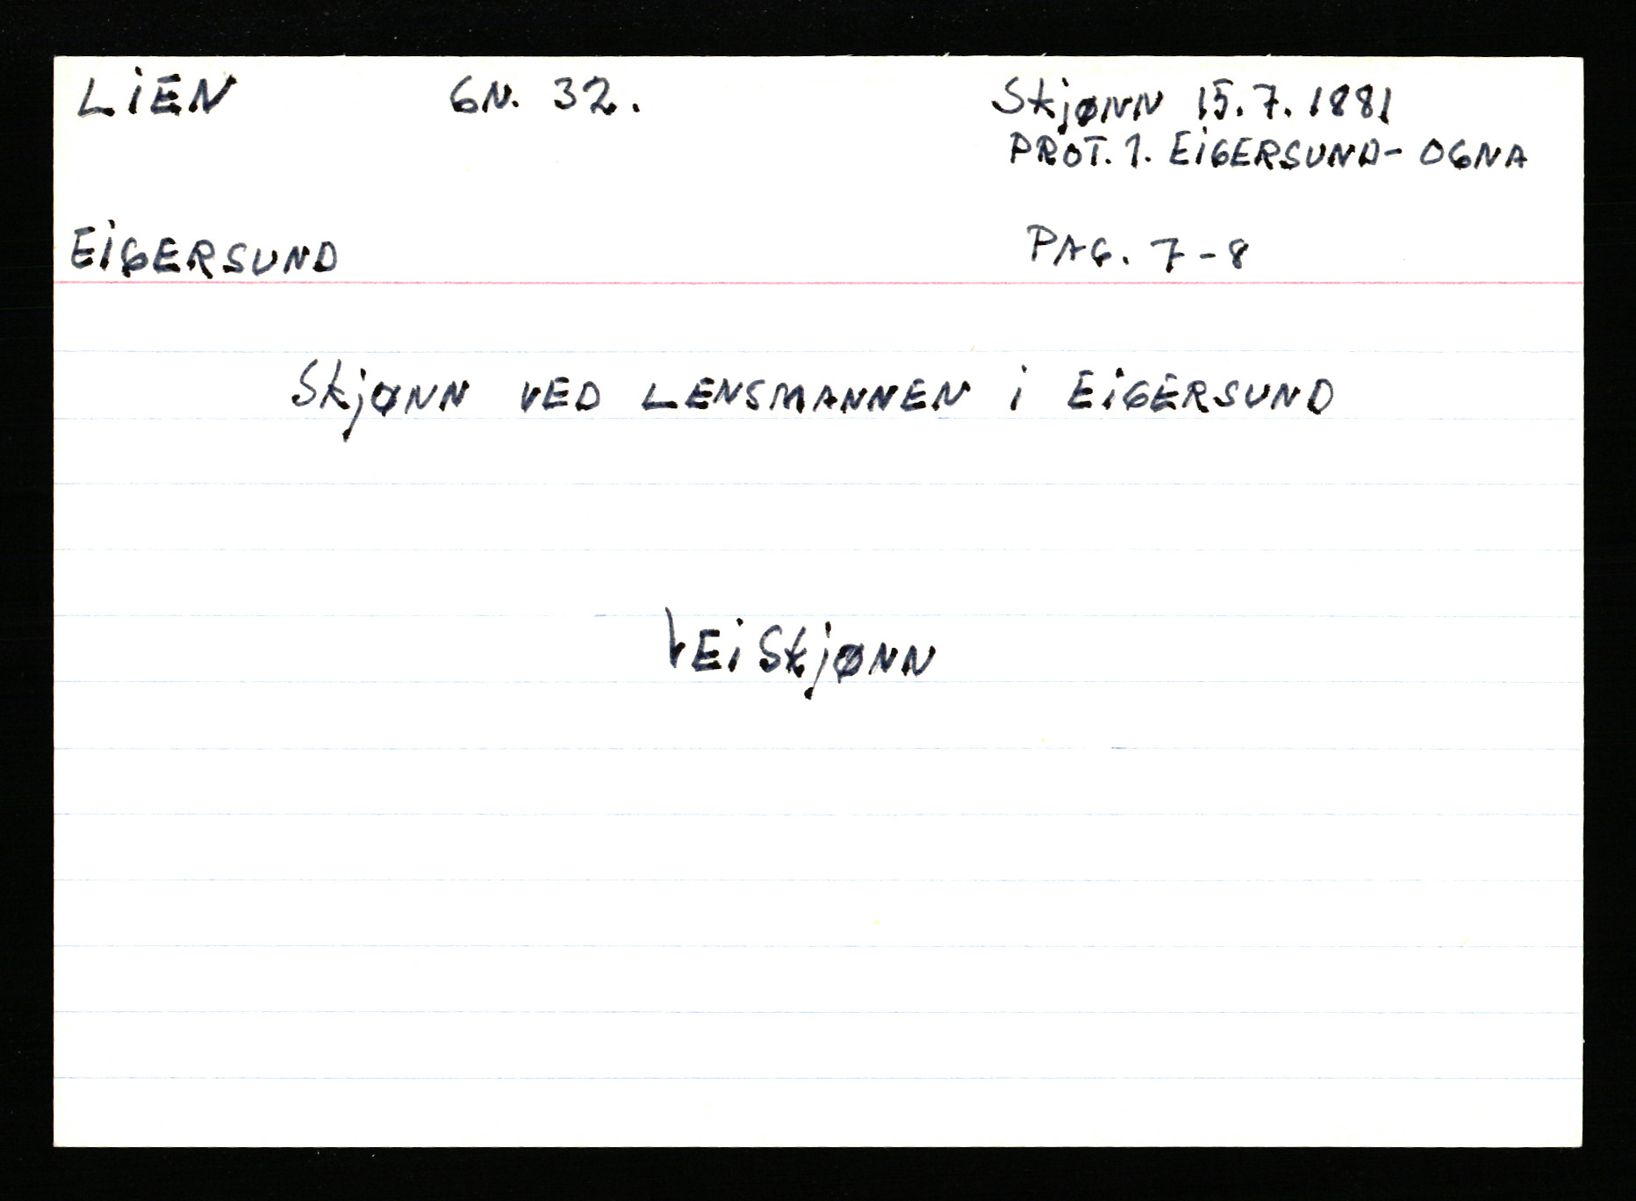 LiEN GN. 32. Skjønn 15.7.1881
PROT. 1. EiGERSUND-OGNA
EiGERSUND PAG. 7-8
Skjønn VED LENSMANNEN i EiGERSUND
VEiSkjønn